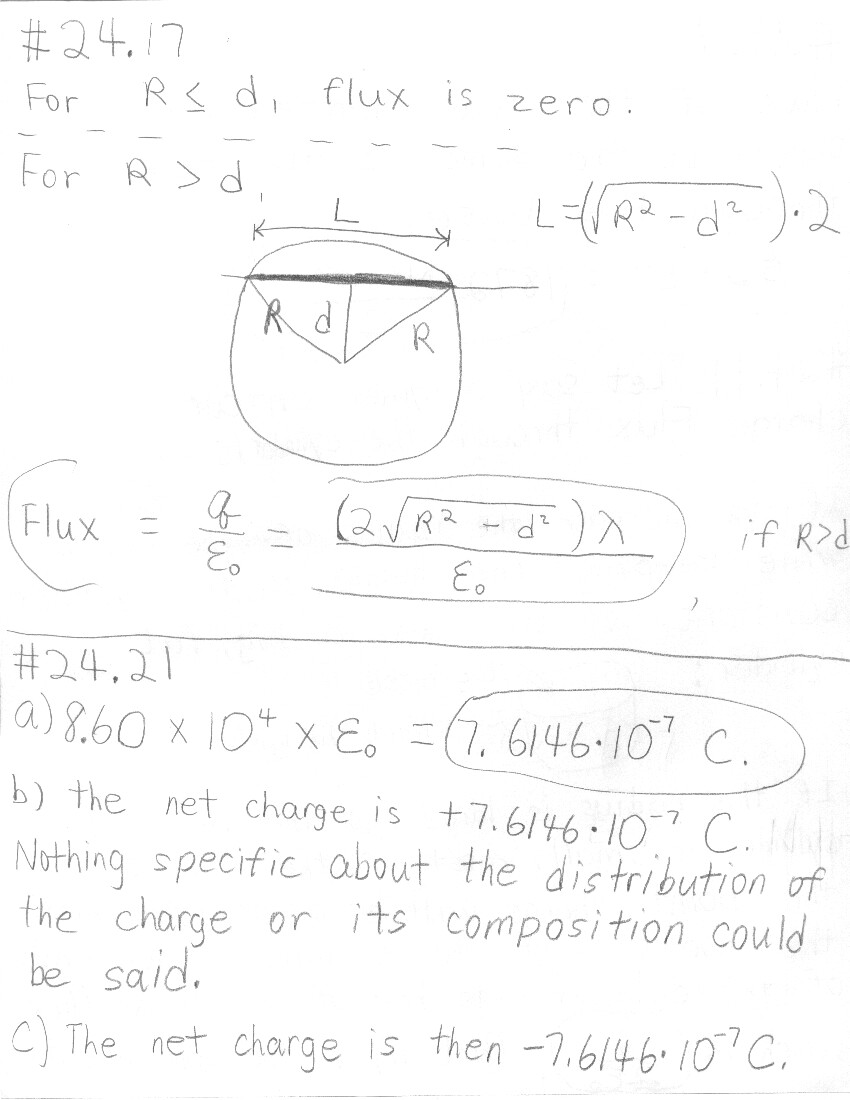 #24.17
For R ≤ d, flux is zero.
For R > d,
L
L=(√(R² - d²))·2
R d R
Flux = q/ε₀ = (2√(R² - d²))λ/ε₀, if R>d
#24.21
a) 8.60 x 10⁴ x ε₀ = 7.6146·10⁻⁷ C.
b) the net charge is +7.6146·10⁻⁷ C.
Nothing specific about the distribution of
the charge or its composition could
be said.
C) The net charge is then -7.6146·10⁻⁷ C.